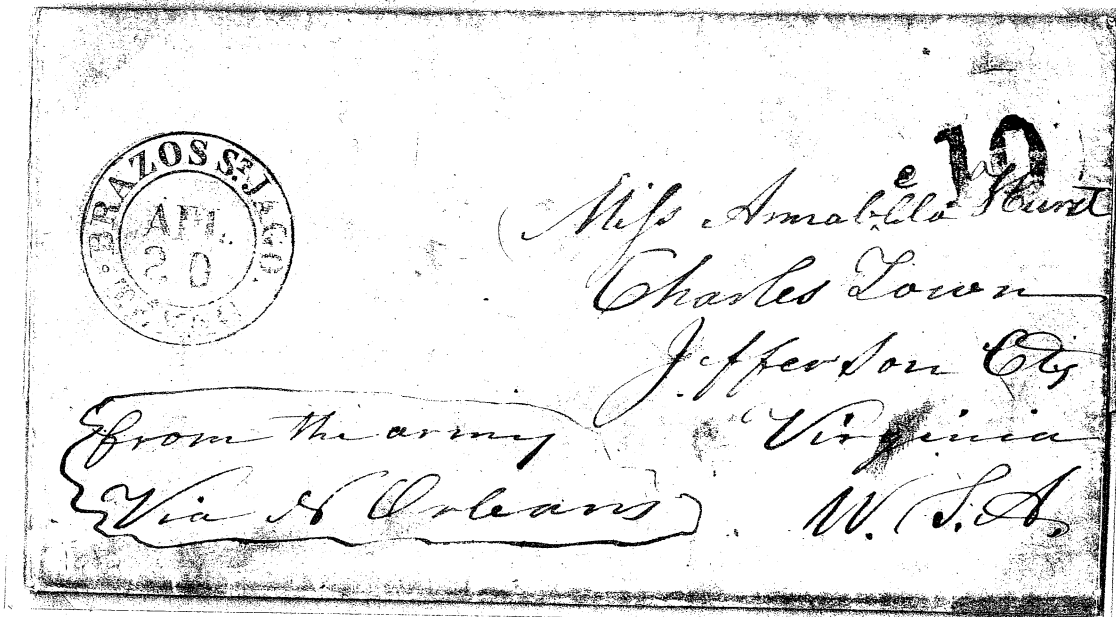 BRAZOS ST. JAGO.
APL.
20
10
Miss Annabella Hurst
Charles Town
Jefferson Cty
Virginia
U. S. A.
from the army
Via N Orleans